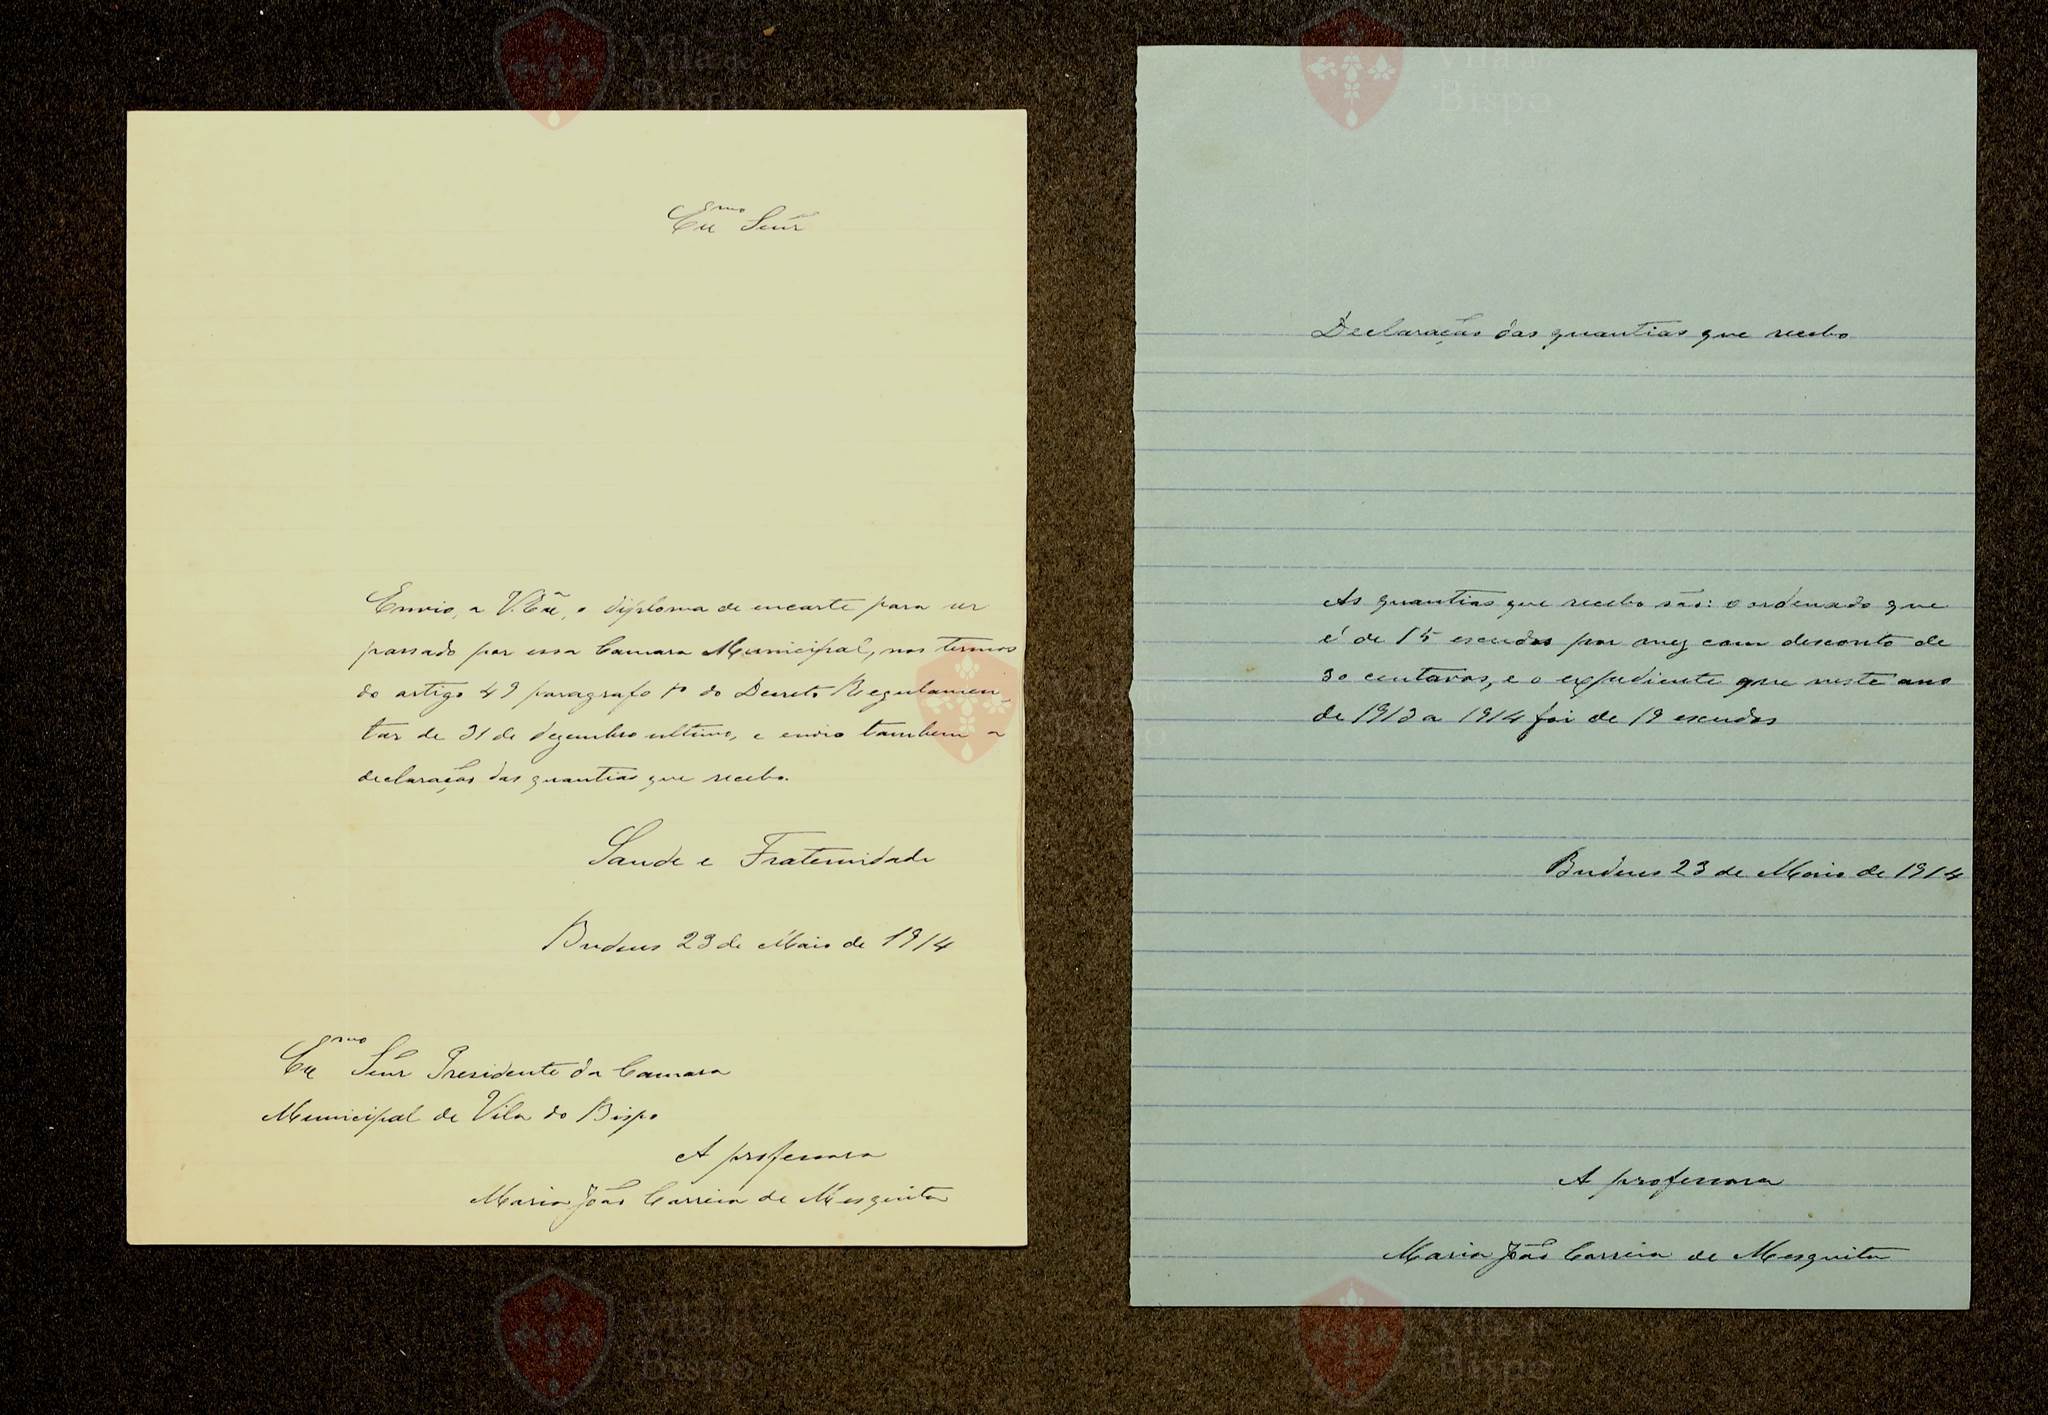 Exmo Senr
Envio, a V. Exã, o diploma de encarte para ser
passado por essa Camara Municipal, nos termos
do artigo 49 paragrafo 1º do Decreto Regulamen-
tar de 31 de dezembro ultimo, e envio tambem a
declaração das quantias que recebo.
Saude e Fraternidade
Budens 23 de Maio de 1914
Exmo Senr Presidente da Camara
Municipal de Vila do Bispo
A professora
Maria João Correia de Mesquita
Declaração das quantias que recebo
As quantias que recebo são: o ordenado que
é de 15 escudos por mez com desconto de
30 centavos, e o expediente que neste ano
de 1913 a 1914 foi de 19 escudos
Budens 23 de Maio de 1914
A professora
Maria João Correia de Mesquita
Vila do
Bispo
Vila do
Bispo
Bispo
Vila do
Bispo
Vila do
Bispo